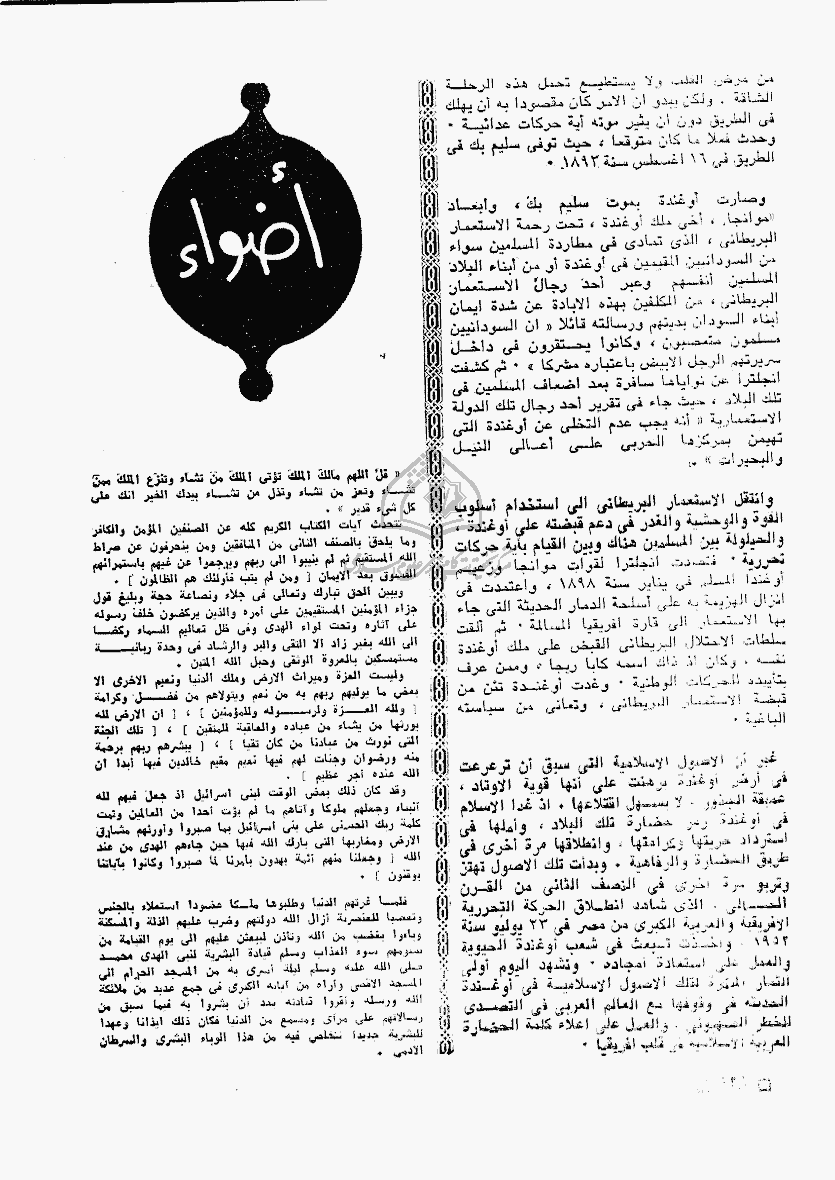 من مرض القلب ولا يستطيع تحمل هذه الرحلة
الشاقة . ولكن يبدو أن الأمر كان مقصودا به أن يهلك
فى الطريق دون أن يثير موته أية حركات عدائية .
وحدث فعلا ما كان متوقعا ، حيث توفى سليم بك فى
الطريق فى ١٦ اغسطس سنة ١٨٩٣ .
وصارت أوغندة بموت سليم بك ، وابعاد
«موانجا» أخى ملك أوغندة ، تحت رحمة الاستعمار
البريطانى ، الذى تمادى فى مطاردة المسلمين سواء
من السودانيين المقيمين فى أوغندة أو من أبناء البلاد
المسلمين أنفسهم وعبر أحد رجال الاستعمار
البريطانى ، من المكلفين بهذه الابادة عن شدة ايمان
أبناء السودان بدينهم ورسالته قائلا « ان السودانيين
مسلمون متعصبون ، وكانوا يحتقرون فى داخل
سريرتهم الرجل الابيض باعتباره مشركا » . ثم كشفت
انجلترا عن نواياها سافرة بعد اضعاف المسلمين فى
تلك البلاد ، حيث جاء فى تقرير أحد رجال تلك الدولة
الاستعمارية « أنه يجب عدم التخلى عن أوغندة التى
تهيمن بمركزها الحربى على أعالى النيل
والبحيرات » .
وانتقل الاستعمار البريطانى الى استخدام أسلوب
القوة والوحشية والغدر فى دعم قبضته على أوغندة ،
والحيلولة بين المسلمين هناك وبين القيام بأية حركات
تحررية . فتصدت انجلترا لقوات موانجا وزعيم
أوغندا المسلم فى يناير سنة ١٨٩٨ ، واعتمدت فى
انزال الهزيمة به على أسلحة الدمار الحديثة التى جاء
بها الاستعمار الى قارة افريقيا المسالمة . ثم ألقت
سلطات الاحتلال البريطانى القبض على ملك أوغندة
نفسه ، وكان اذ ذاك اسمه كابا ريجا ، وممن عرف
بتأييده للحركات الوطنية . وغدت أوغندة تئن من
قبضة الاستعمار البريطانى ، وتعانى من سياسته
الباغية .
غير أن الاصول الاسلامية التى سبق أن ترعرعت
فى أرض أوغندة برهنت على أنها قوية الاوتاد ،
عميقة الجذور . لا يسهل اقتلاعها ، اذ غدا الاسلام
فى أوغندة رمز حضارة تلك البلاد ، وأملها فى
استرداد حريتها وكرامتها ، وانطلاقها مرة أخرى فى
طريق الحضارة والرفاهية . وبدأت تلك الاصول تهتز
وتربو مرة أخرى فى النصف الثانى من القرن
الحالى ، الذى شاهد انطلاق الحركة التحررية
الافريقية والعربية الكبرى من مصر فى ٢٣ يوليو سنة
١٩٥٢ . وأخذت تبعث فى شعب أوغندة الحيوية
والعمل على استعادة أمجاده . ونشهد اليوم أولى
الثمار لتلك الاصول الاسلامية فى أوغندة
الحديثة فى وقوفها مع العالم العربى فى التصدى
للخطر الصهيونى ، والعمل على اعلاء كلمة الحضارة
العربية الاسلامية فى قلب افريقيا .
أضواء
« قل اللهم مالك الملك تؤتى الملك من تشاء وتنزع الملك ممن
تشاء وتعز من تشاء وتذل من تشاء بيدك الخير انك على
كل شىء قدير » .
تتحدث آيات الكتاب الكريم كله عن الصنفين المؤمن والكافر
وما يلحق بالصف الثانى من المنافقين ومن ينحرفون عن صراط
الله المستقيم ثم لم ينيبوا الى ربهم ويرجعوا عن غيهم باستمرائهم
الفسوق بعد الايمان [ ومن لم يتب فأولئك هم الظالمون ] .
ويبين الحق تبارك وتعالى فى جلاء ونصاعة حجة وبليغ قول
جزاء المؤمنين المستقيمين على أمره والذين يركضون خلف رسوله
على آثاره وتحت لواء الهدى وفى ظل تعاليم السماء ركضا
الى الله بغير زاد الا التقى والبر والرشاد فى وحدة ربانية
مستمسكين بالعروة الوثقى وحبل الله المتين .
وليست العزة وميراث الارض وملك الدنيا ونعيم الاخرى الا
بعض ما يوليهم ربهم به من نعم ويتولاهم من فضل وكرامة
[ ولله العزة ولرسوله وللمؤمنين ] ، [ ان الارض لله
يورثها من يشاء من عباده والعاقبة للمتقين ] ، [ تلك الجنة
التى نورث من عبادنا من كان تقيا ] ، [ يبشرهم ربهم برحمة
منه ورضوان وجنات لهم فيها نعيم مقيم خالدين فيها أبدا ان
الله عنده أجر عظيم ] .
وقد كان ذلك بعض الوقت لبنى اسرائيل اذ جعل فيهم لله
أنبياء وجعلهم ملوكا وآتاهم ما لم يؤت أحدا من العالمين وتمت
كلمة ربك الحسنى على بنى اسرائيل بما صبروا وأورثهم مشارق
الارض ومغاربها التى بارك الله فيها حين جاءهم الهدى من عند
الله [ وجعلنا منهم أئمة يهدون بأمرنا لما صبروا وكانوا بآياتنا
يوقنون ] .
فلما غرتهم الدنيا وطلبوها ملكا عضودا استعلاء بالجنس
وتعصبا للعنصرية أزال الله دولتهم وضرب عليهم الذلة والمسكنة
وباءوا بغضب من الله وتأذن ليبعثن عليهم الى يوم القيامة من
يسومهم سوء العذاب وسلم قيادة البشرية لنبى الهدى محمد
صلى الله عليه وسلم ليلة أسرى به من المسجد الحرام الى
المسجد الاقصى وأراه من آياته الكبرى فى جمع عديد من ملائكة
الله ورسله وأقروا قيادته بعد أن بشروا به فيما سبق من
رسالاتهم على مرأى ومسمع من الدنيا فكان ذلك ايذانا وعهدا
للبشرية جديدا تتخلص فيه من هذا الوباء البشرى والسرطان
الآدمى .